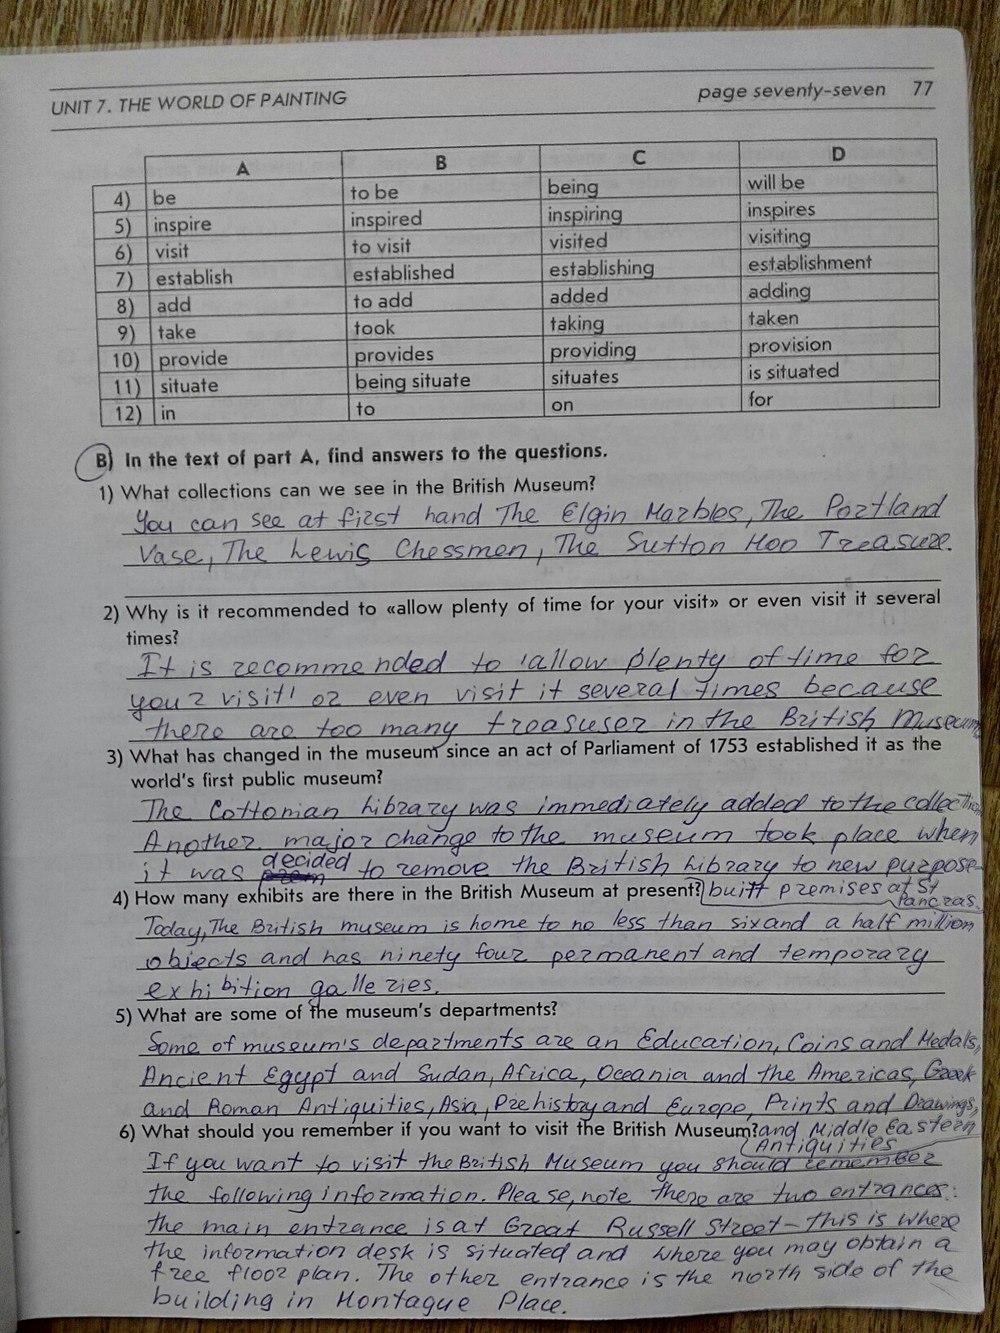 UNIT 7. THE WORLD OF PAINTING page seventy-seven 77
A B C D
4) be to be being will be
5) inspire inspired inspiring inspires
6) visit to visit visited visiting
7) establish established establishing establishment
8) add to add added adding
9) take took taking taken
10) provide provides providing provision
11) situate being situate situates is situated
12) in to on for
B) In the text of part A, find answers to the questions.
1) What collections can we see in the British Museum?
You can see at first hand The Elgin Marbles, The Portland
Vase, The Lewis Chessmen, The Sutton Hoo Treasure.
2) Why is it recommended to «allow plenty of time for your visit» or even visit it several
times?
It is recommended to 'allow plenty of time for
your visit' or even visit it several times because
there are too many treasuser in the British Museum
3) What has changed in the museum since an act of Parliament of 1753 established it as the
world's first public museum?
The Cottonian Library was immediately added to the collection
Another major change to the museum took place when
it was decided to remove the British Library to new purpose-
4) How many exhibits are there in the British Museum at present? built premises at St
Pancras.
Today, The British museum is home to no less than six and a half million
objects and has ninety four permanent and temporary
exhibition galleries.
5) What are some of the museum's departments?
Some of museum's departments are an Education, Coins and Medals,
Ancient Egypt and Sudan, Africa, Oceania and the Americas, Greek
and Roman Antiquities, Asia, Prehistory and Europe, Prints and Drawings,
6) What should you remember if you want to visit the British Museum? and Middle Eastern
Antiquities
If you want to visit the British Museum you should remember
the following information. Please, note there are two entrances:
the main entrance is at Great Russell Street – this is where
the information desk is situated and where you may obtain a
free floor plan. The other entrance is the north side of the
building in Montague Place.